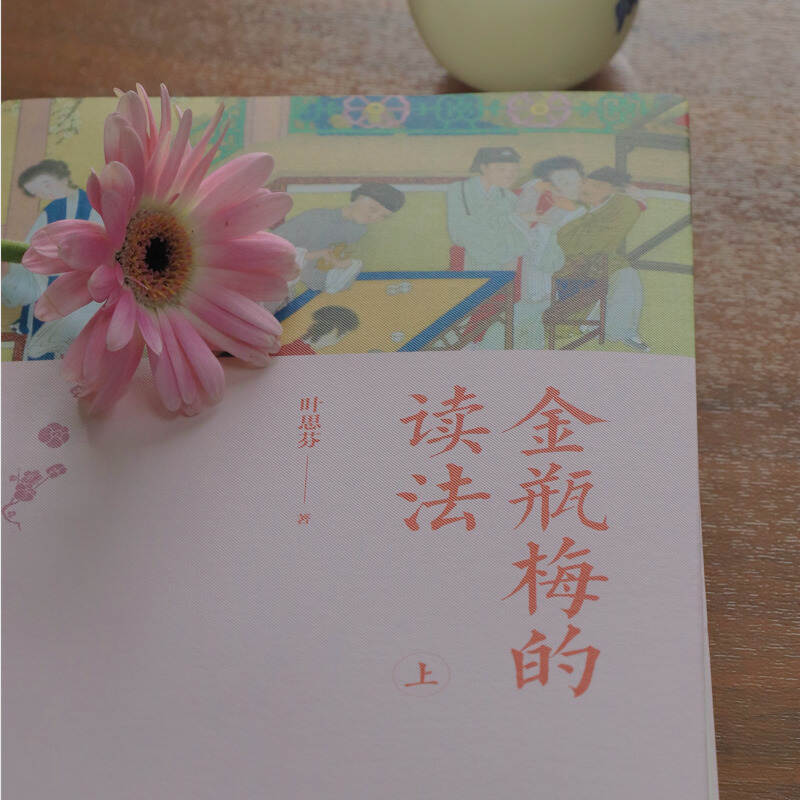 金瓶梅的
读法
上
叶思芬
著